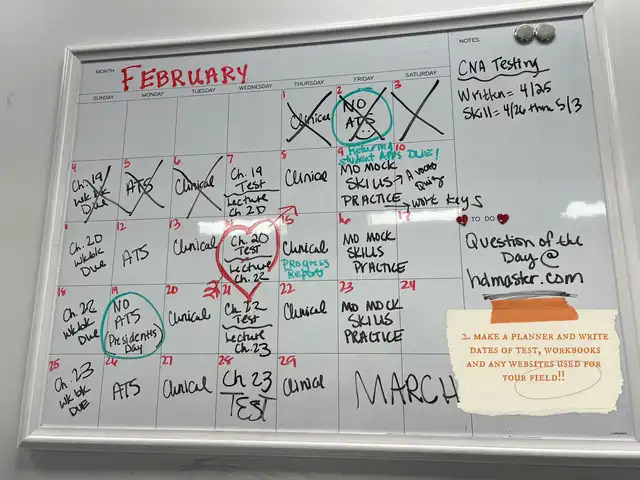 MONTH FEBRUARY
SUNDAY MONDAY TUESDAY WEDNESDAY THURSDAY FRIDAY SATURDAY
1 Clinical
2 NO
ATS
3
4 Ch. 19
Wk bk
Due
5 ATS
6 Clinical
7 Ch. 19
Test
Lecture
Ch. 20
8 Clinical
9 Returning
Student Apps DUE!
MO MOCK
SKILLS
PRACTICE
10
→ WORK KEYS
11
Ch. 20
Wkbk
Due
12
ATS
13
Clinical
Ch. 20
Test
Lecture
Ch. 22
15
Clinical
Progress
Reports
16
MO MOCK
SKILLS
PRACTICE
17
18
Ch. 22
Wkbk
Due
19
NO
ATS
Presidents
Day
20
Clinical
21
Ch. 22
Test
Lecture
Ch. 23
22
Clinical
23
MO MOCK
SKILLS
PRACTICE
24
25
Ch. 23
Wk bk
DUE
26
ATS
27
Clinical
28
Ch 23
TEST
29
Clinical
MARCH
NOTES
CNA Testing
Written = 4/25
Skill = 4/26 thru 5/3
TO DO
Question of the
Day @
hdmaster.com
2. MAKE A PLANNER AND WRITE
DATES OF TEST, WORKBOOKS
AND ANY WEBSITES USED FOR
YOUR FIELD!!